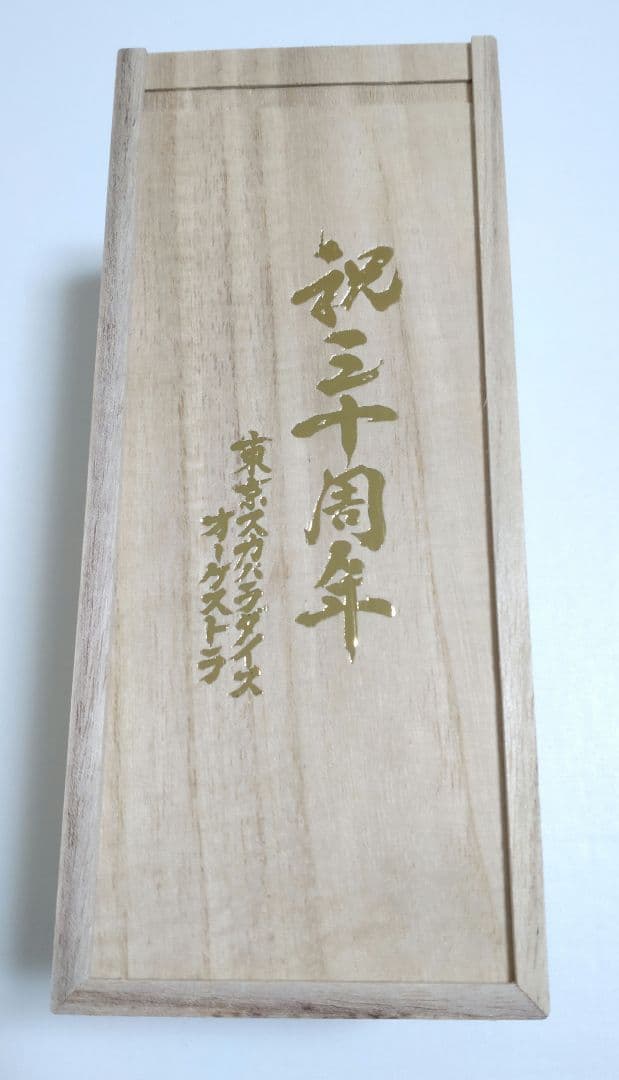 祝三十周年
東京スカパラダイス
オーケストラ